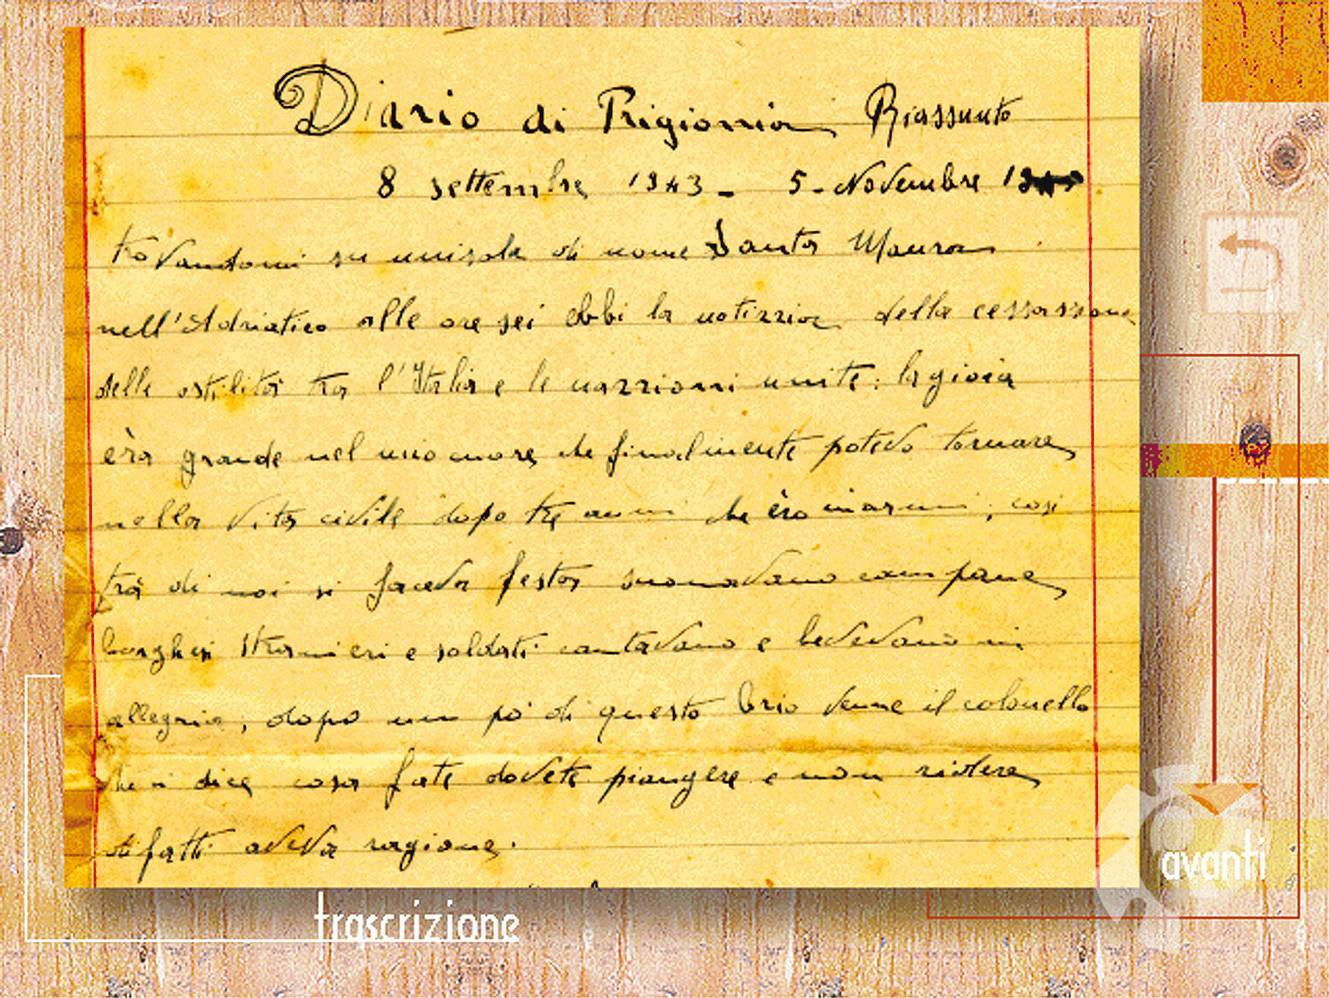 Diario di Prigionia Riassunto
8 settembre 1943 - 5 - Novembre
trovandomi su unisola di nome Santa Maura
nell'Adriatico alle ore sei ebbi la notizzia della cessassione
delle ostilità tra l'Italia e le nazzioni unite: la gioia
èra grande nel mio cuore che finalmente potevo tornare
nella vita civile dopo tre anni che èro marini, cosi
trà di noi si faceva festa suonavano campane
borghesi stranieri e soldati cantavano e bevevano in
allegria, dopo un pò di questo brio venne il colonello
che ci dice cosa fate dovete piangere e non ridere
di fatti aveva ragione.
trascrizione
avanti